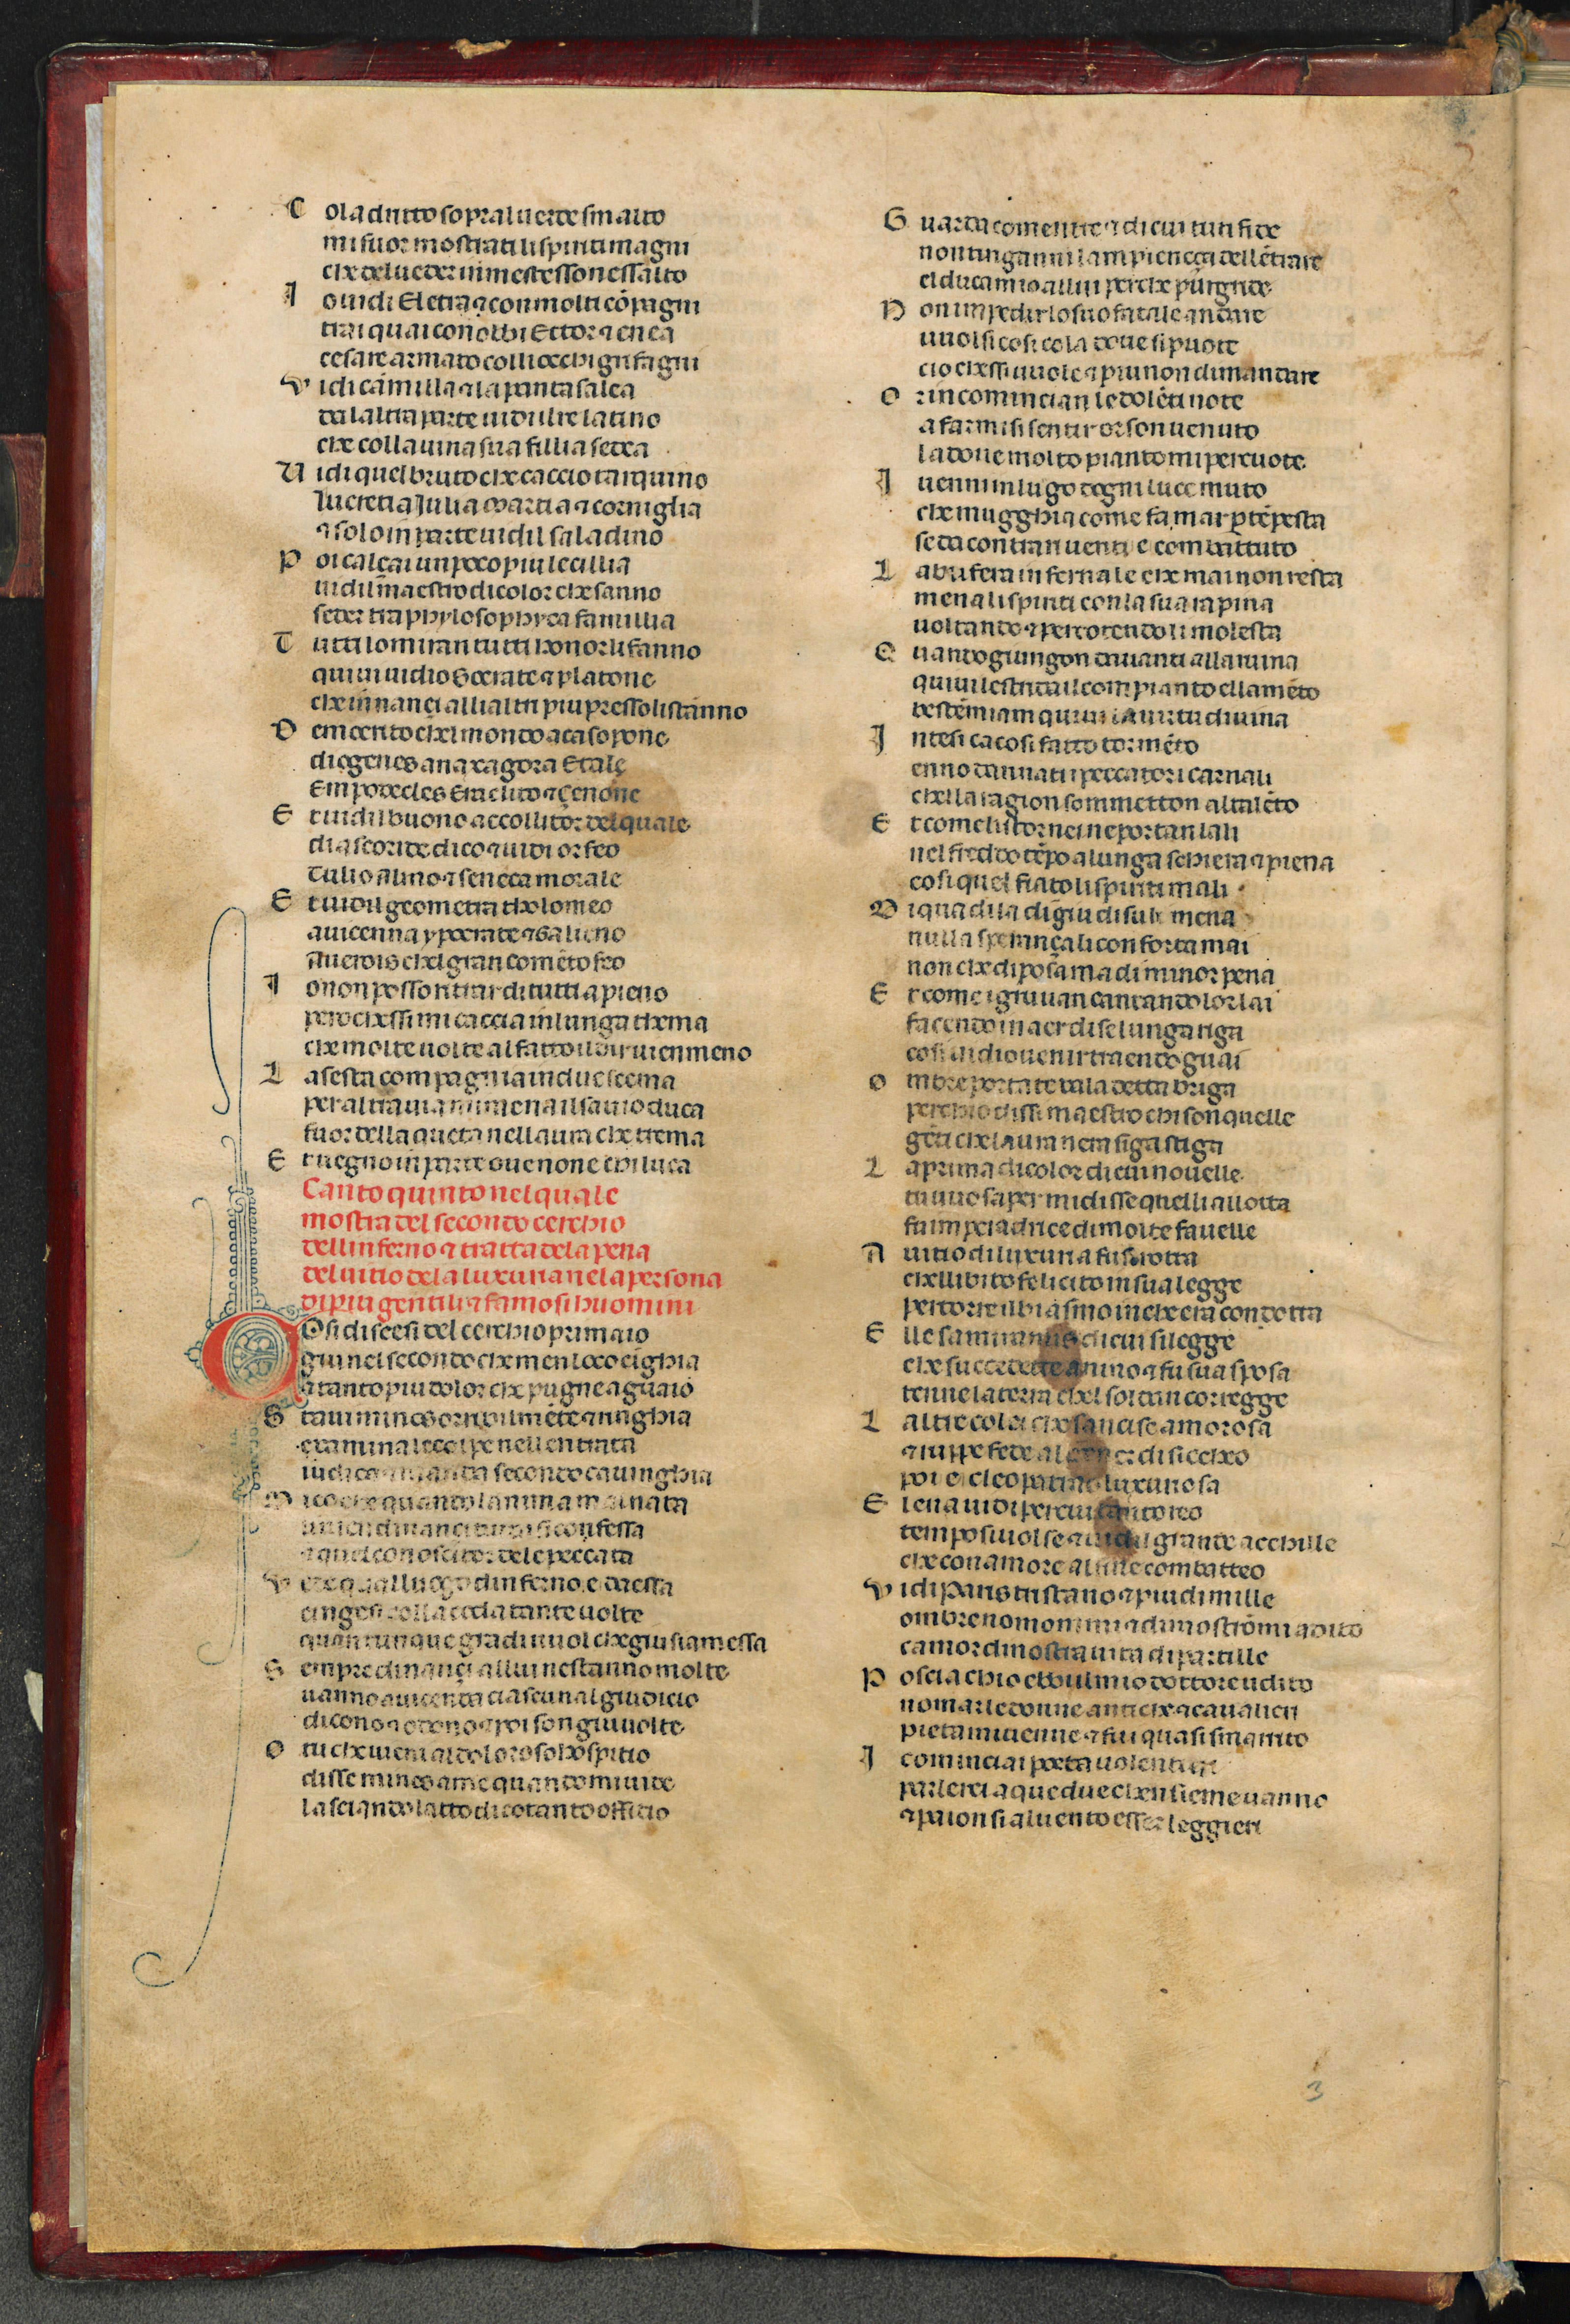 C oladritto sopraluerde smalto
misuor mostrati lispiriti magni
che delueder inmestesso nessalto
I ouidi Eletra ⁊ conmolti cōpagni
traiquai conobbi Ettor ⁊ enea
cesare armato colliocchi grifagni
V idi camilla ⁊ la pantasalea
dalaltra parte uidilre latino
che collauina sua fillia sedea
U idi quel bruto che caccio tarquino
lucretia Julia martia ⁊ corniglia
⁊ solo in parte uidil saladino
P oi calçai unpoco piu lecillia
uidil maestro dicolor che sanno
seder tra phylosophyca famillia
T utti lomiran tutti honor li fanno
quiui uidio Socrate ⁊ platone
che innançi alli altri piu presso li stanno
D emocrito chel mondo acaso pone
diogenes anaxagora Etale
Empodecles Eraclito ⁊ Çenone
E t uidil buono accollitor delquale
diascoride dico ⁊ uidi orfeo
Tulio alino ⁊ seneca morale
E t uidil geometra tholomeo
auicenna ypocrate ⁊ Galieno
Auerois chel gran comēto feo
I o non posso ritrar di tutti apieno
pero chessi mi caccia inlunga thema
che molte uolte al fatto il dir uien meno
L a sesta compagnia indue scema
per altra uia mimena il sauio duca
fuor della queta nellaura che trema
E t uegno in parte oue none chi luca
Canto quinto nel quale
mostra del secondo cerchio
dellinferno ⁊ tratta dela pena
del uitio dela luxuria nela persona
di piu gentili ⁊ famosi huomini
COsi discesi del cerchio primaio
giu nel secondo che men loco cighia
⁊ tanto piu dolor che pugne aguaio
S taui minos orribilmēte ⁊ righia
examina le colpe nellentrata
iudica ⁊ manda secondo cauinghia
D ico che quando lanima mal nata
li uien dinançi tutta si confessa
⁊ quel conoscitor dele peccata
V ede qual luogo dinferno e da essa
cingesi colla coda tante uolte
quantunque gradi uuol che giu sia messa
S empre dinançi allui nestanno molte
uanno auicenda ciascuna al giudicio
dicono ⁊ odono ⁊ poi son giu uolte
O tu che uieni al doloroso hospitio
disse minos ame quando mi uide
lasciando latto di cotanto offitio
G uarda comentre ⁊ dicui tuti fide
non tinganni lampieçça dellētrare
el duca mio allui perche pur gride
N on impedir lo suo fatale andare
uuolsi cosi cola doue si puote
cio chessi uuole ⁊ piu non dimandare
O r incomincian le dolēti note
a farmisi sentir or son uenuto
la doue molto pianto mi percuote
I uenni in lugo dogni luce muto
che mugghia come fa mar p tēpesta
se da contrari uenti e combattuto
L a bufera infernale che mai non resta
mena li spiriti con la sua rapina
uoltando ⁊ percotendo li molesta
Q uando giungon dauanti alla ruina
quiui le strida il compianto ellamēto
bestēmian quiui la uirtu diuina
I ntesi ca cosi fatto tormēto
enno dannati i peccatori carnali
chella ragion sommetton al talēto
E t come li stornei ne portan lali
nel freddo tēpo a lunga schiera ⁊ piena
cosi quel fiato li spiriti mali
D i qua di la di giu di su li mena
nulla sperança li conforta mai
non che di posa ma di minor pena
E t come i gru uan cantando lor lai
facendo in aer di se lunga riga
cosi uidio uenir traendo guai
O mbre portate dala detta briga
perchio dissi maestro chi son quelle
gēti che laura nera si gastiga
L a prima di color di cui nouelle
tu uuo saper mi disse quelli allotta
fu imperadrice di molte fauelle
A uitio di luxuria fu si rotta
chellibito fe licito in sua legge
per torre il biasmo in che era condotta
E lle samiramis di cui si legge
che succedette a nino ⁊ fu sua sposa
tenne la terra chel soldan corregge
L altre colei che sancise amorosa
⁊ ruppe fede al cener di siccheo
poi e cleopatras luxuriosa
E lena uidi per cui tanto reo
tempo si uolse ⁊ uidil grande acchille
che con amore al fine combatteo
V idi Paris tristano ⁊ piu di mille
ombre nomominiadi mostrōmi a dito
camor di nostra uita dipartille
P oscia chio ebbi il mio dottore udito
nomar le donne antiche ⁊ caualieri
pieta mi uenne ⁊ fui quasi smarrito
I cominciai poeta uolentieri
parlerei a que due chensieme uanno
⁊ paion si al uento esser leggieri
3